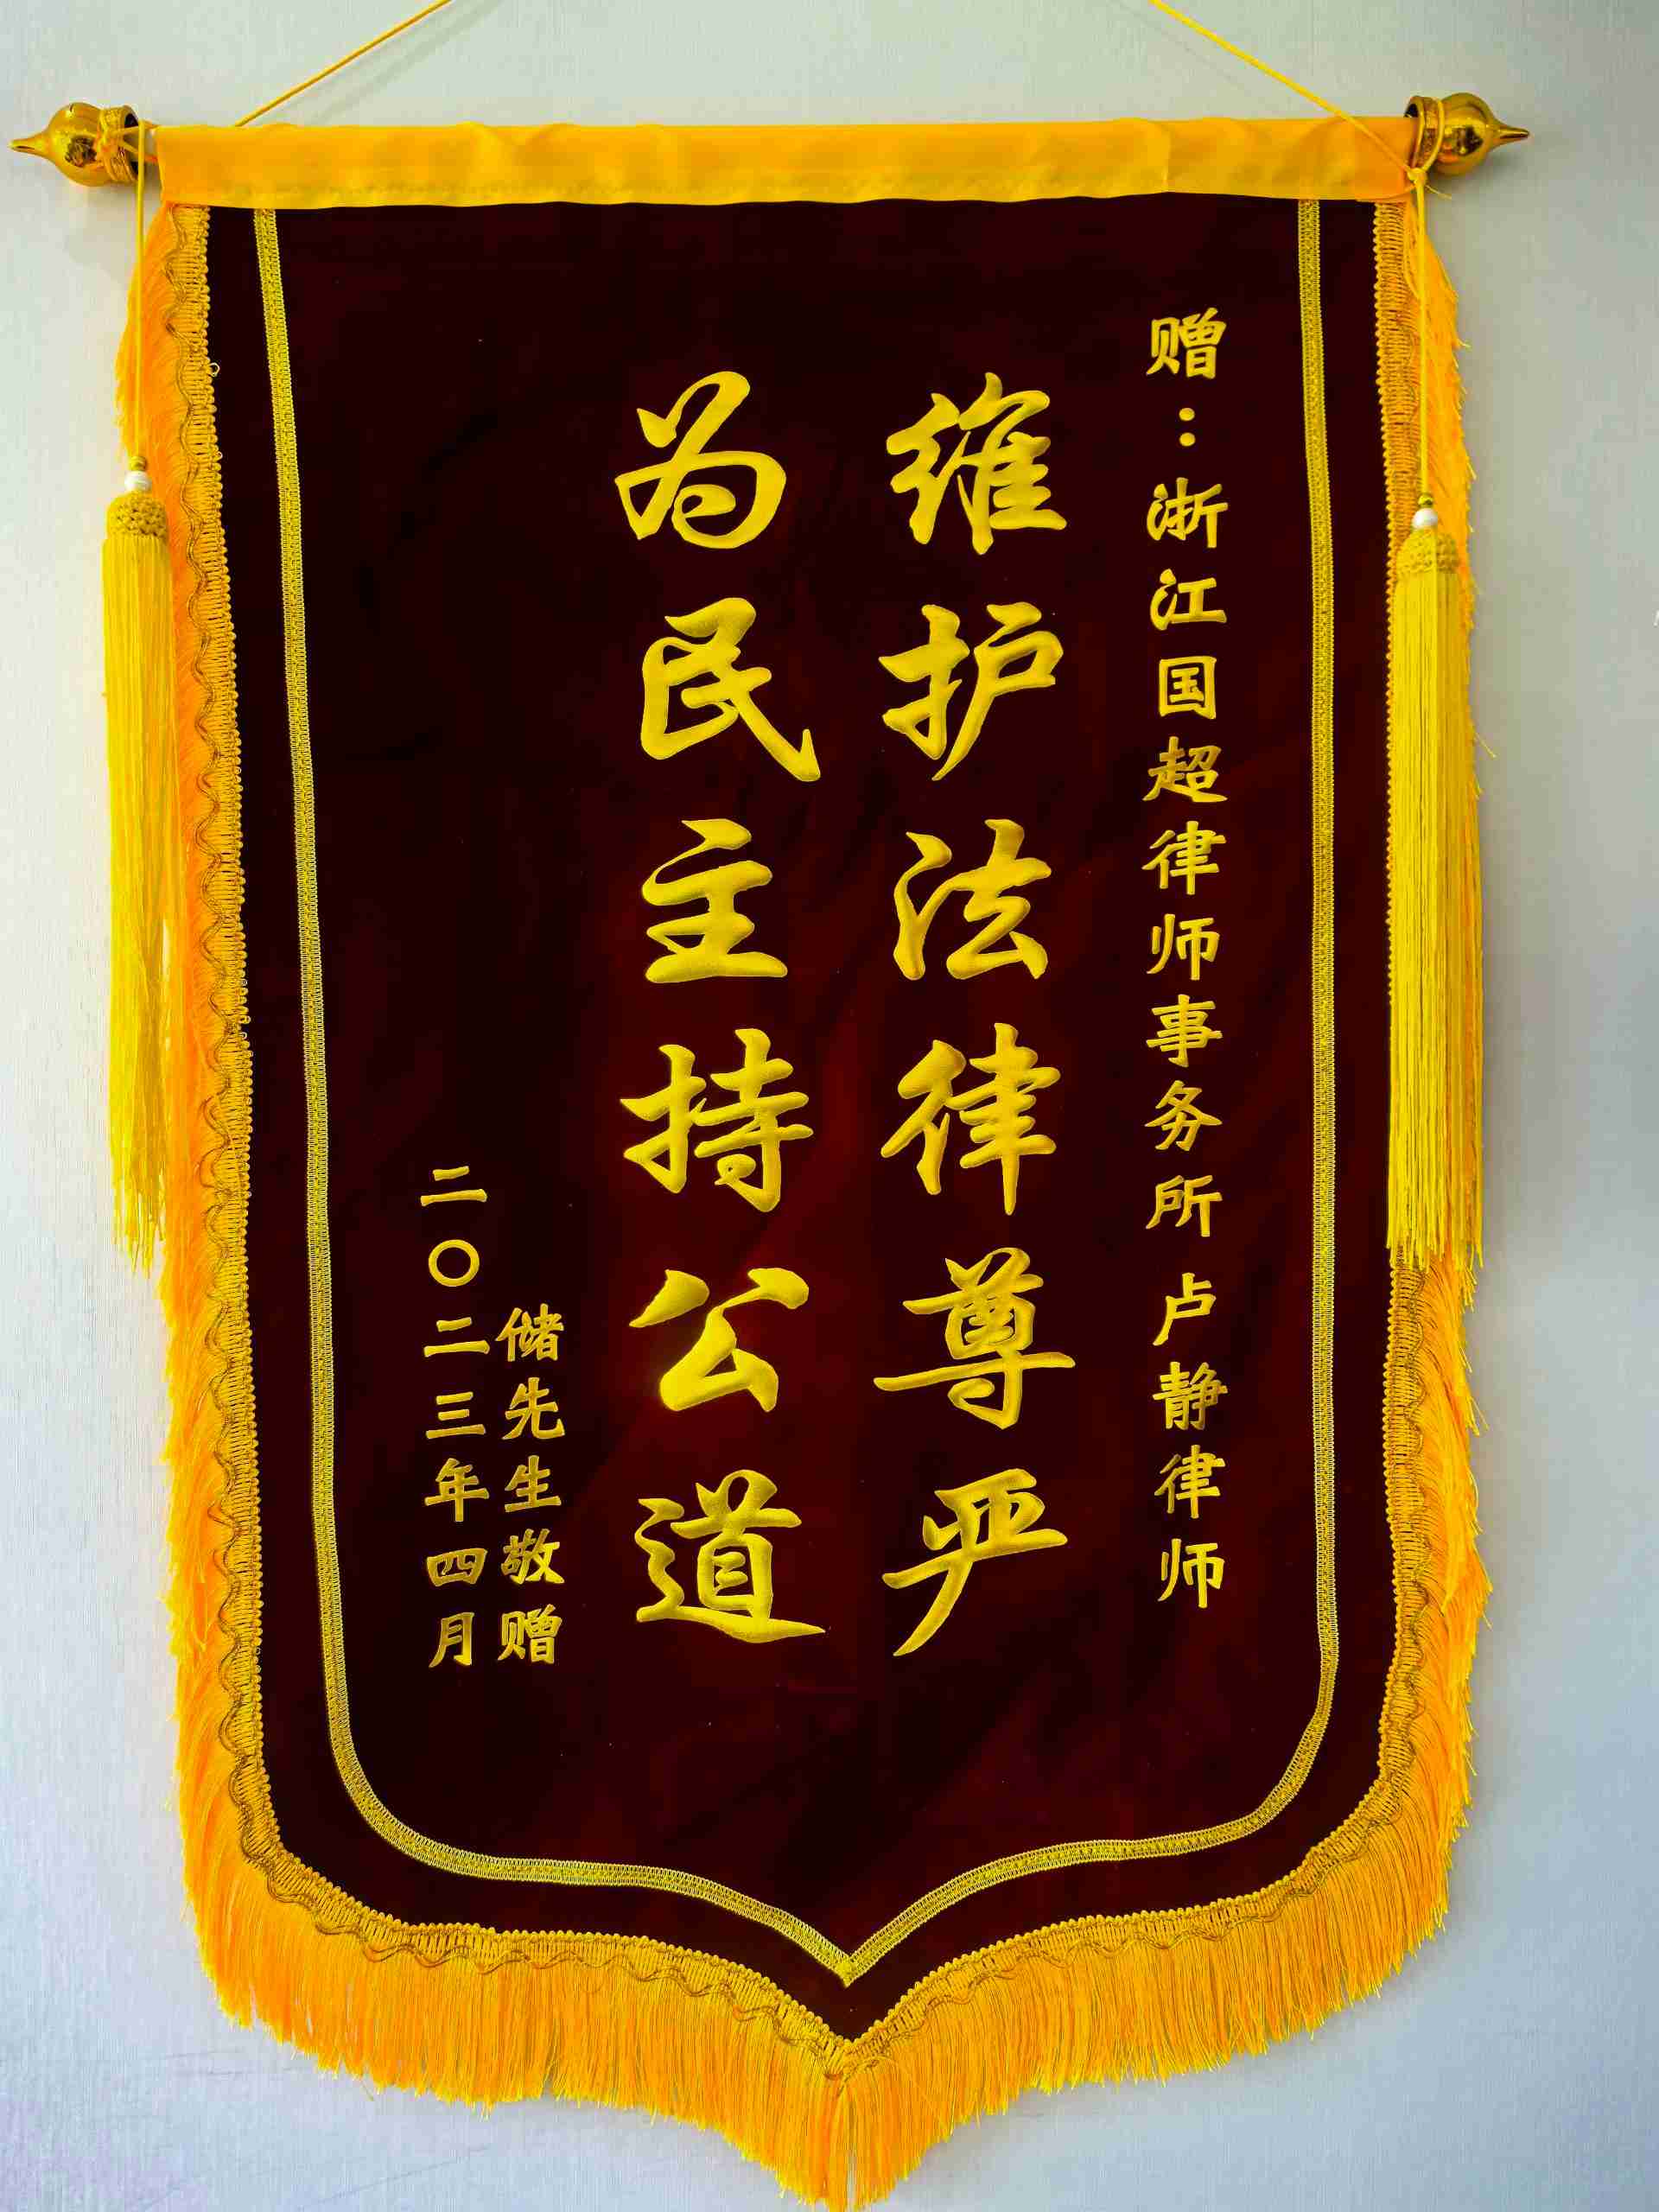 赠：浙江国超律师事务所 卢静律师
维护法律尊严
为民主持公道
储先生敬赠
二〇二三年四月